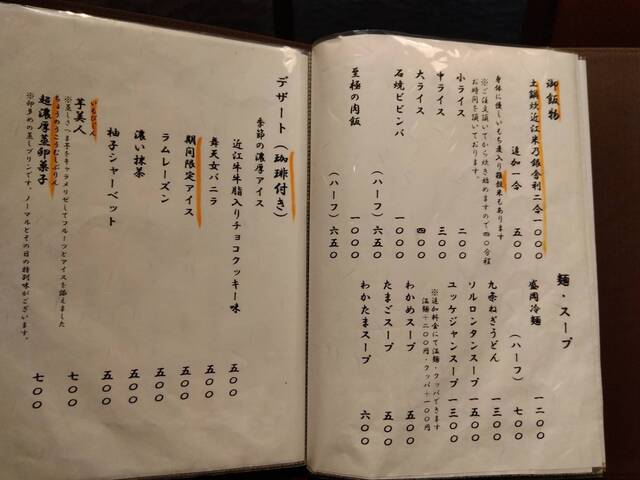 御飯物
土鍋炊近江米乃銀舎利二合一〇〇〇
追加一合 五〇〇
身体に優しいもち麦入り雑穀米もあります
※ご注文頂いてから炊き始めますので四〇分程
お時間を頂いております。
小ライス 二〇〇
中ライス 三〇〇
大ライス 四〇〇
石焼ビビンバ 一〇〇〇
(ハーフ) 六五〇
至極の肉飯 一〇〇〇
(ハーフ) 六五〇
麺・スープ
盛岡冷麺 一二〇〇
(ハーフ) 七〇〇
九条ねぎうどん 一三〇〇
ソルロンタンスープ 一五〇〇
ユッケジャンスープ 一三〇〇
※追加料金にて温麺・クッパできます
温麺+二〇〇円・クッパ+一〇〇円
わかめスープ 五〇〇
たまごスープ 五〇〇
わかたまスープ 六〇〇
デザート(珈琲付き)
季節の濃厚アイス
近江牛牛脂入りチョコクッキー味 五〇〇
舞天女バニラ 五〇〇
期間限定アイス
ラムレーズン 五〇〇
濃い抹茶 五〇〇
柚子シャーベット 五〇〇
いもびじん
芋美人 七〇〇
※蒸しさつま芋をキャラメリゼしてフルーツとアイスを添えました
ちょうのうこうむしぷりん
超濃厚蒸卵菓子 七〇〇
※卵多めの蒸しプリンです。ノーマルとその日の特別味がございます。